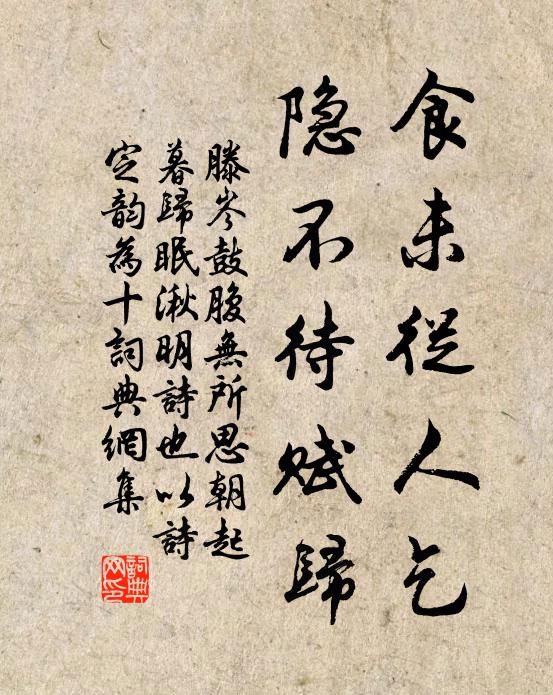 食未從人乞
隐不待赋歸
滕岑鼓腹無所思朝起
暮歸眠渊明詩也以詩
定韵為十詞典網集
詞典
网印